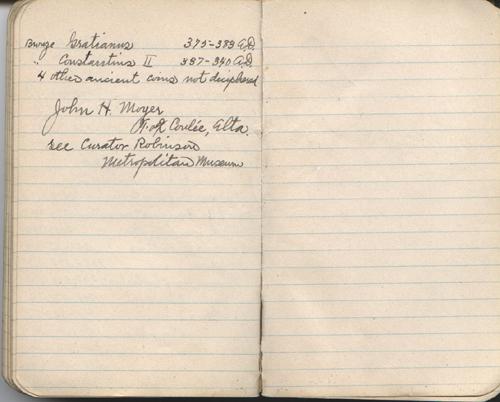 Bronze Gratianus 375-383 A.D.
" Constantius II 337-340 A.D.
4 other ancient coins not deciphered
John H. Moyer
Coulée, Alta.
see Curator Robinson
Metropolitan Museum